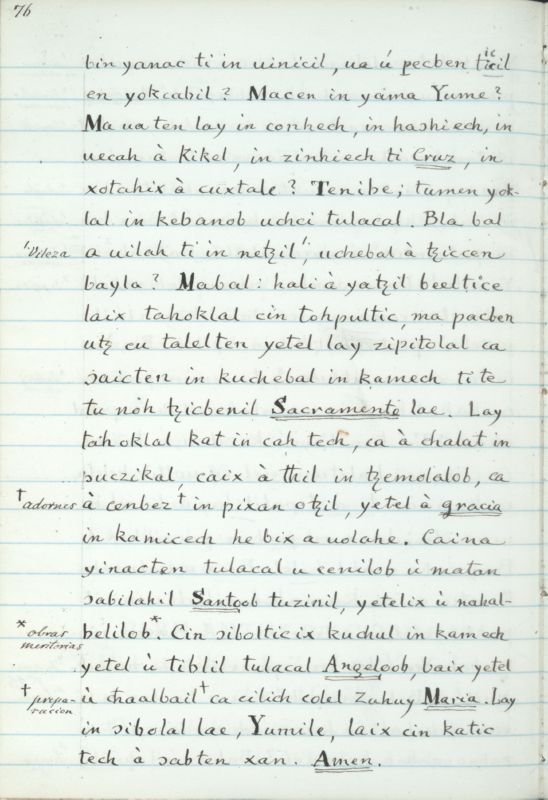 76
bin yanac ti in uinicil, ua ú pecben ticil
en yokcabil? Macen in yáma Yume?
Ma ua ten lay in conhech, in haɔhiech, in
uecah à Kikel, in zinhiech ti Cruz, in
xotahix à cuxtale? Tenibe; tumen yok-
lal in kebanob uchci tulacal. Bla bal
a uilah ti in netzil, uchebal à tziccen
'Vileza
bayla? Mabal: hali à yatzil beeltice
laix tahoklal cin tohpultic, ma pacben
utz cu talelten yetel lay zipitolal ca
ɔaicten in kuchebal in kamech ti te
tu nòh tzicbenil Sacramento lae. Lay
tahoklal kat in cah tech, ca à chalat in
puczikal, caix à thil in tzemolalob, ca
à cenbez† in pixan otzil, yetel à gracia
†adornes
in kamicech he bix a uolahe. Caina
yinacten tulacul u cenilob ù matan
ɔabilahil Santoob tuzinil, yetelix ù nahal-
belilob*. Cin ɔiboltic ix kuchul in kamech
*obras meritorias
yetel ù tiblil tulacal Angeloob, baix yetel
ù chaalbail† ca cilich colel Zuhuy Maria. Lay
†prepa-
racion
in ɔibolal lae, Yumile, laix cin katic
tech à ɔabten xan. Amen.